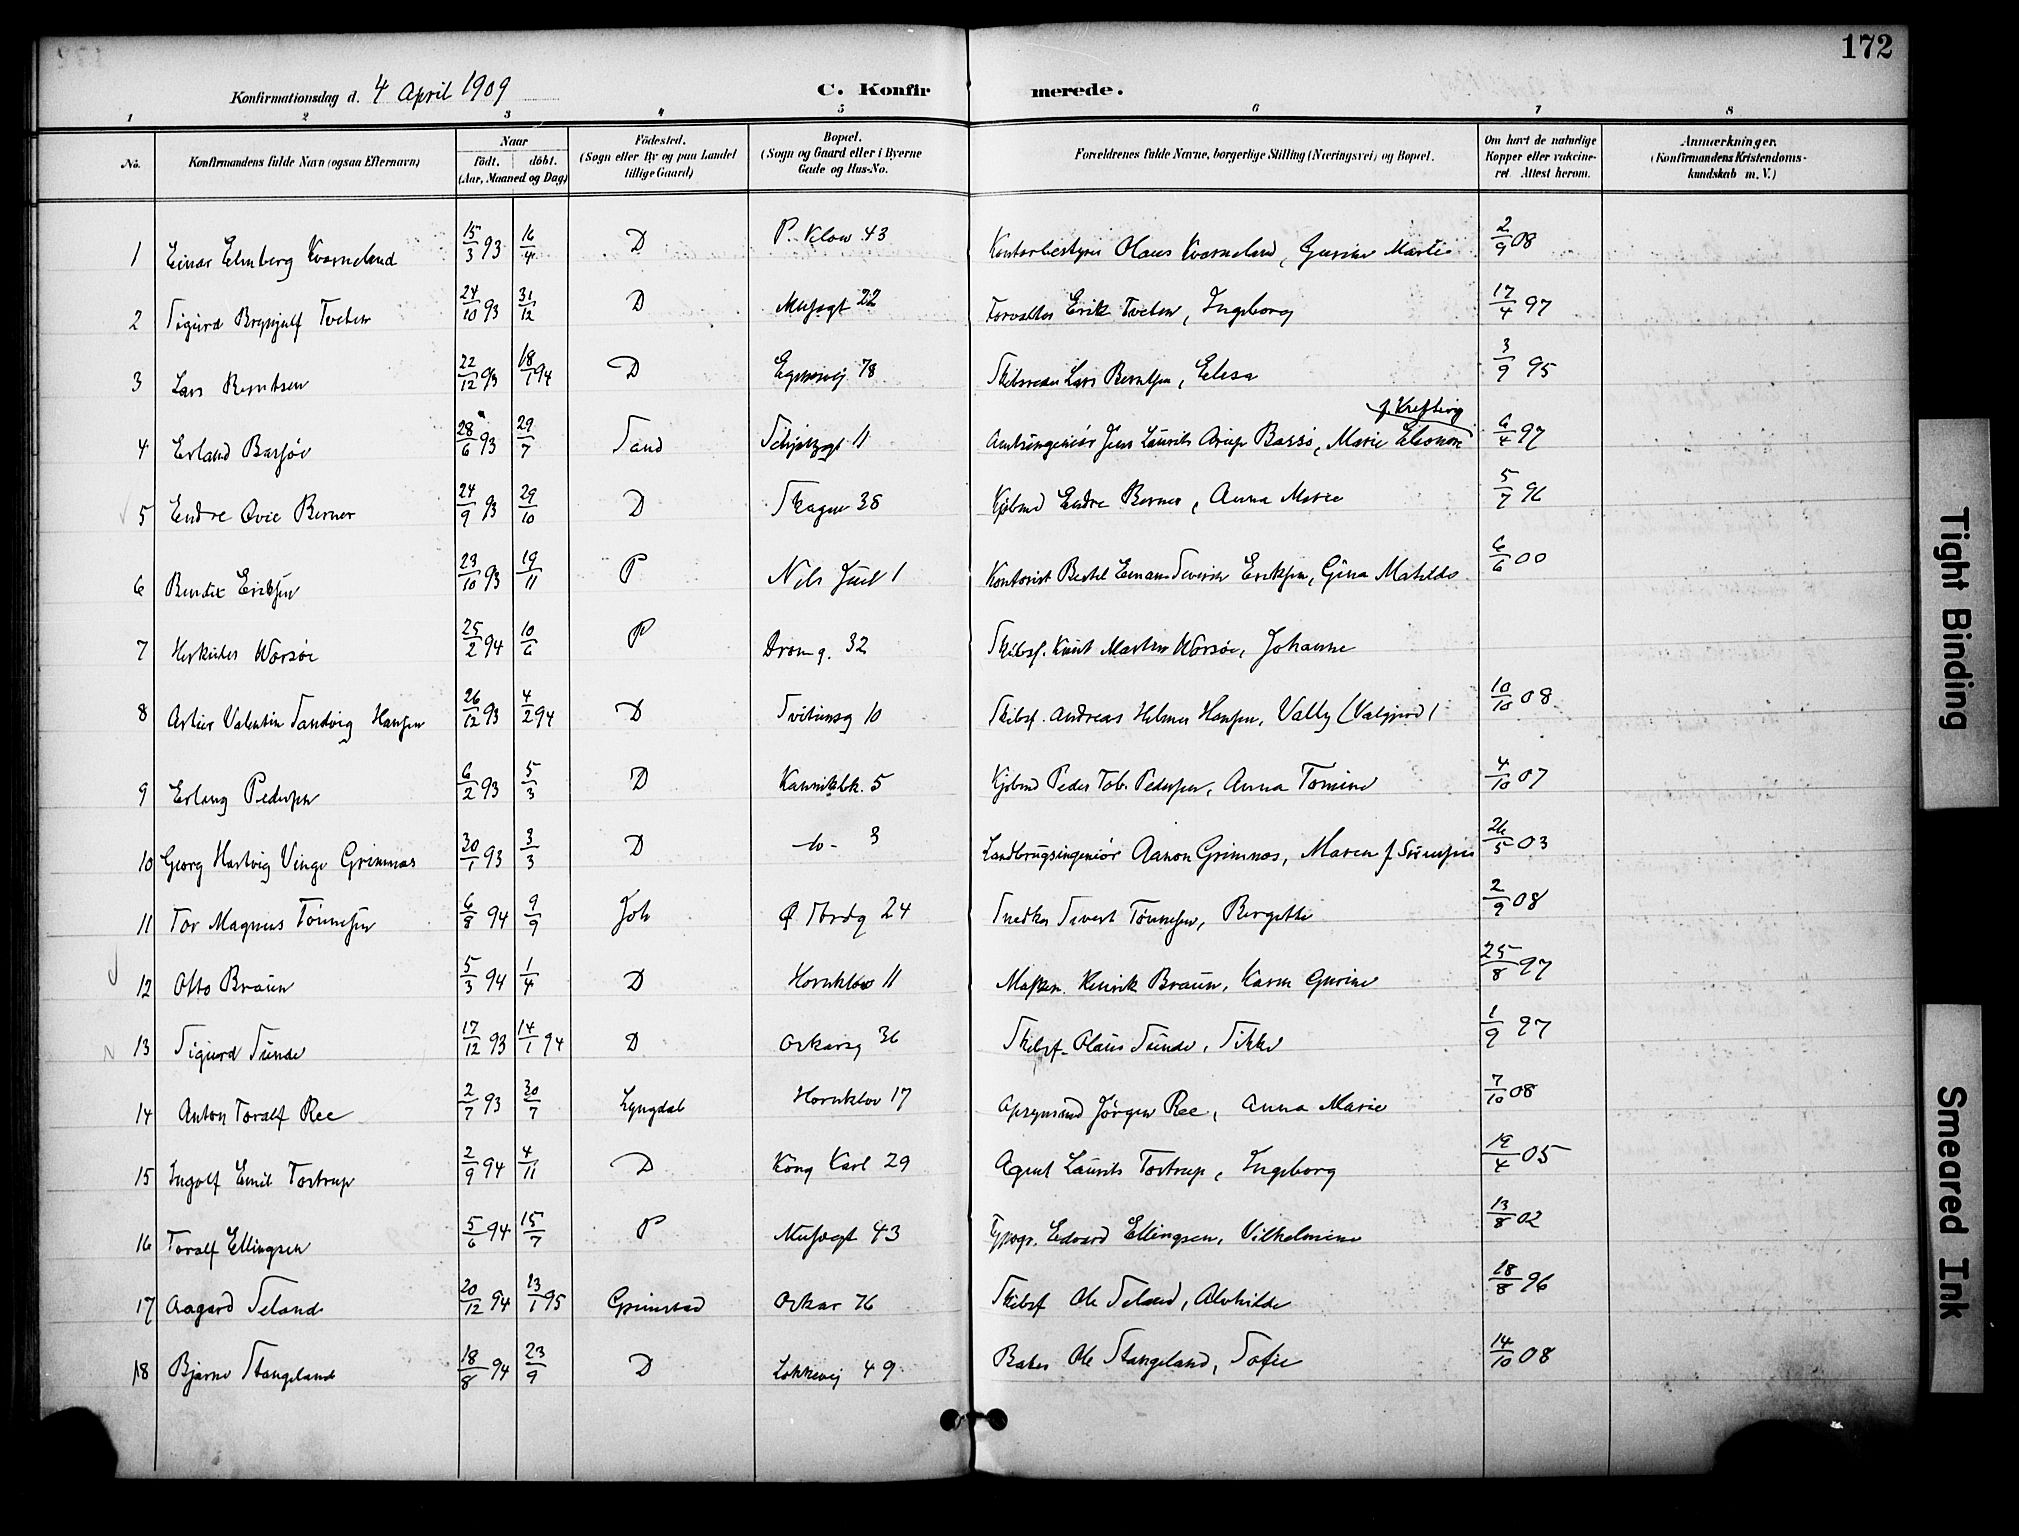 172
Konfirmationsdag d. 4 April 1909
C. Konfirmerede.
1 2 3 4 5 6 7 8
No. Konfirmandens fulde Navn (ogsaa Efternavn) Naar födt. döbt. (Aar, Maaned og Dag) Födested. (Sogn eller By og paa Landet tillige Gaard) Bopæl. (Sogn og Gaard eller i Byerne Gade og Hus-No. Forældrenes fulde Navne, borgerlige Stilling (Næringsvei) og Bopæl. Om havt de naturlige Kopper eller vakcineret. Attest herom. Anmærkninger. (Konfirmandens Kristendomskundskab m. V.)
1 Einar Elmberg Kvarneland 15/3 93 16/4 D P. Klow 43 Kontorbestyrer Olaus Kvarneland, Gurine Marti 2/9 08
2 Sigurd Brynjulf Tveten 24/10 93 31/12 D Musegt 22 Forvalter Erik Tveten, Ingeborg 17/4 97
3 Lars Berntsen 22/12 93 18/1 94 D Egenesvej 78 Skibsreder Lars Berntsen, Elisa 3/9 95
f. Krefting
4 Erland Bassøe 28/6 93 29/7 Sand 11 Amtsingeniør Jens Laurits Arup Bassø, Marie Eleonore 6/4 97
5 Endre Ovie Berner 24/9 93 29/10 D Skagen 38 Kjøbmd Endre Berner, Anna Marie 5/7 96
6 Bendix Eriksen 23/10 93 19/11 P Nils Juel 1 Kontorist Bertel Severin Eriksen, Gina Matilde 6/6 00
7 Herkules Worsøe 25/2 94 10/6 P Dron g. 32 Skibsf. Knut Martin Worsøe, Johanne
8 Artur Valentin Sandvig Hansen 26/12 93 4/2 94 D 10 Skibsf. Andreas Helmer Hansen, Vally (Valgjerd) 10/10 08
9 Erling Pedersen 6/2 93 5/3 D Kannikbk. 5 Kjøbmd Peder Tob. Pedersen, Anna Tomine 4/10 07
10 Georg Hartvig Vinge Grimnæs 30/1 93 3/3 D -do- 3 Landbrugsingeniør Aanon Grimnæs, Maren f. Sørensen 26/5 03
11 Tor Magnus Tønnesen 6/8 94 9/9 Joh Ø Strdg 24 Snedker Sivert Tønnesen, Bergitte 2/9 08
12 Otto Braun 5/3 94 1/4 D Hornklov 11 Maskin. Henrik Braun, Karen Gurine 25/8 97
13 Sigurd Sunde 17/12 93 14/1 94 D Oskarsg 36 Skibsf. Olaus Sunde, Sikke 1/9 97
14 Anton Toralf Ree 2/7 93 30/7 Lyngdal Hornklov 17 Opsynsmd Jørgen Ree, Anna Marie 7/10 08
15 Ingolf Emil Tostrup 2/9 94 4/11 D Kong Karl 29 Agent Laurits Tostrup, Ingeborg 19/4 05
16 Toralf Ellingsen 5/6 94 15/7 P Musegt 43 Typogr. Edvard Ellingsen, Vilhelmine 13/8 02
17 Aagard Seland 20/12 94 13/1 95 Grimstad Oskar 76 Skibsf Ole Seland, Alvhilde 18/8 96
18 Bjarne Stangeland 18/8 94 23/9 D Løkkevej 49 Baker Ole Stangeland, Sofie 14/10 08
Tight Binding
Smeared Ink